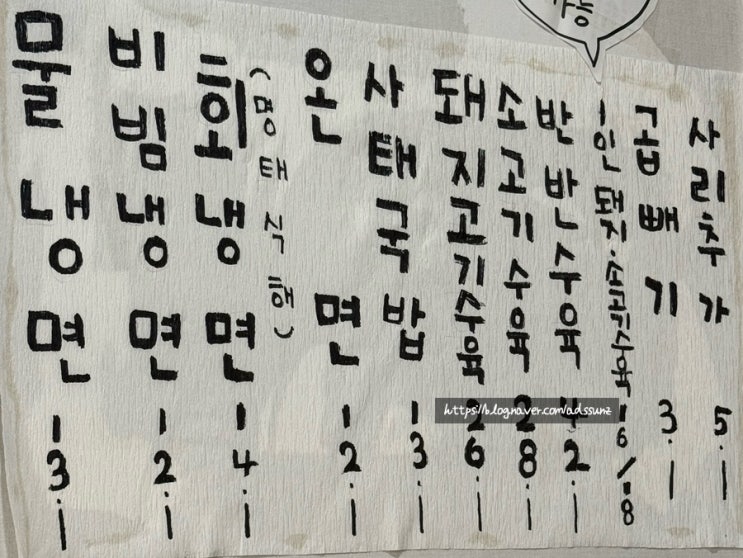 가능
물냉면 13.-
비빔냉면 12.-
회냉면 14.-
(명태식해)
온면 12.-
사태국밥 13.-
돼지고기수육 26.-
소고기수육 28.-
반반수육 42.-
1인돼지·소고기수육 16/18
곱빼기 3.-
사리추가 5.-
https://blog.naver.com/adssunz